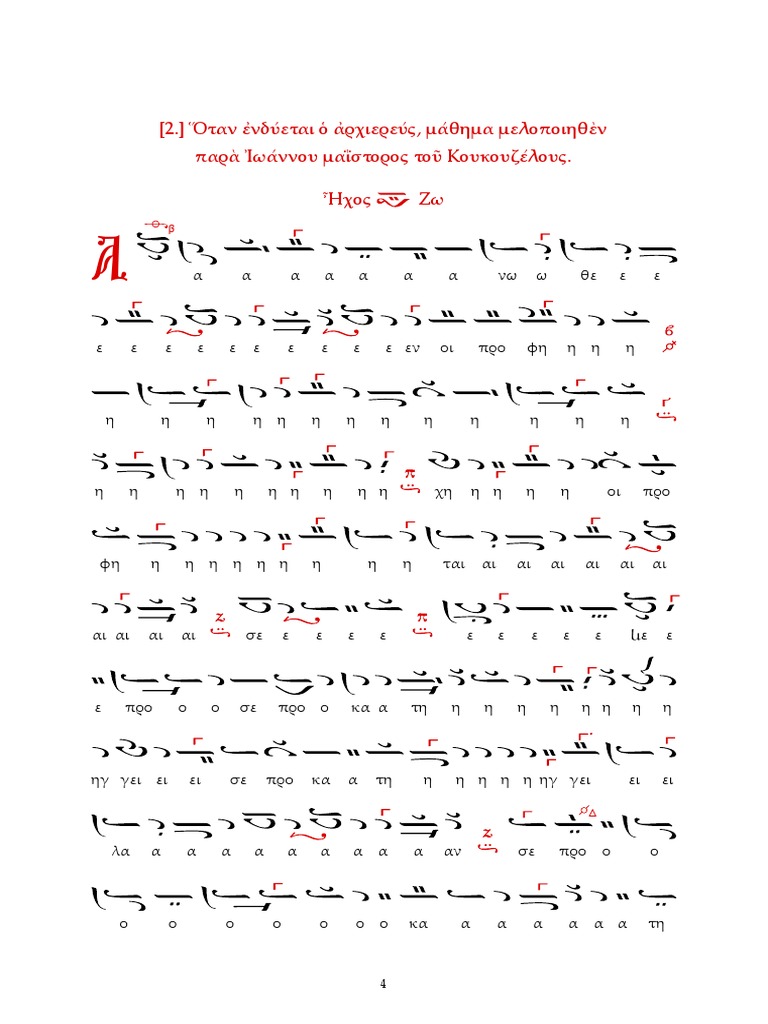 [2.] Ὅταν ἐνδύεται ὁ ἀρχιερεύς, μάθημα μελοποιηθὲν
παρὰ Ἰωάννου μαΐστορος τοῦ Κουκουζέλους.
Ἦχος Ζω
Α α α α α α α α νω ω θε ε ε
ε ε ε ε ε ε ε ε ε εν οι προ φη η η η
η η η η η η η η η η η η η
η η η η η η η η η η χη η η η η οι προ
φη η η η η η η η η η ται αι αι αι αι αι αι
αι αι αι αι σε ε ε ε ε ε ε ε ε ε ιε ε
ε προ ο ο σε προ ο κα α τη η η η η η η η η
ηγ γει ει ει σε προ κα α τη η η η η η ηγ γει ει ει
λα α α α α α α α α α αν σε προ ο ο
ο ο ο ο ο ο ο κα α α α α α α τη
4